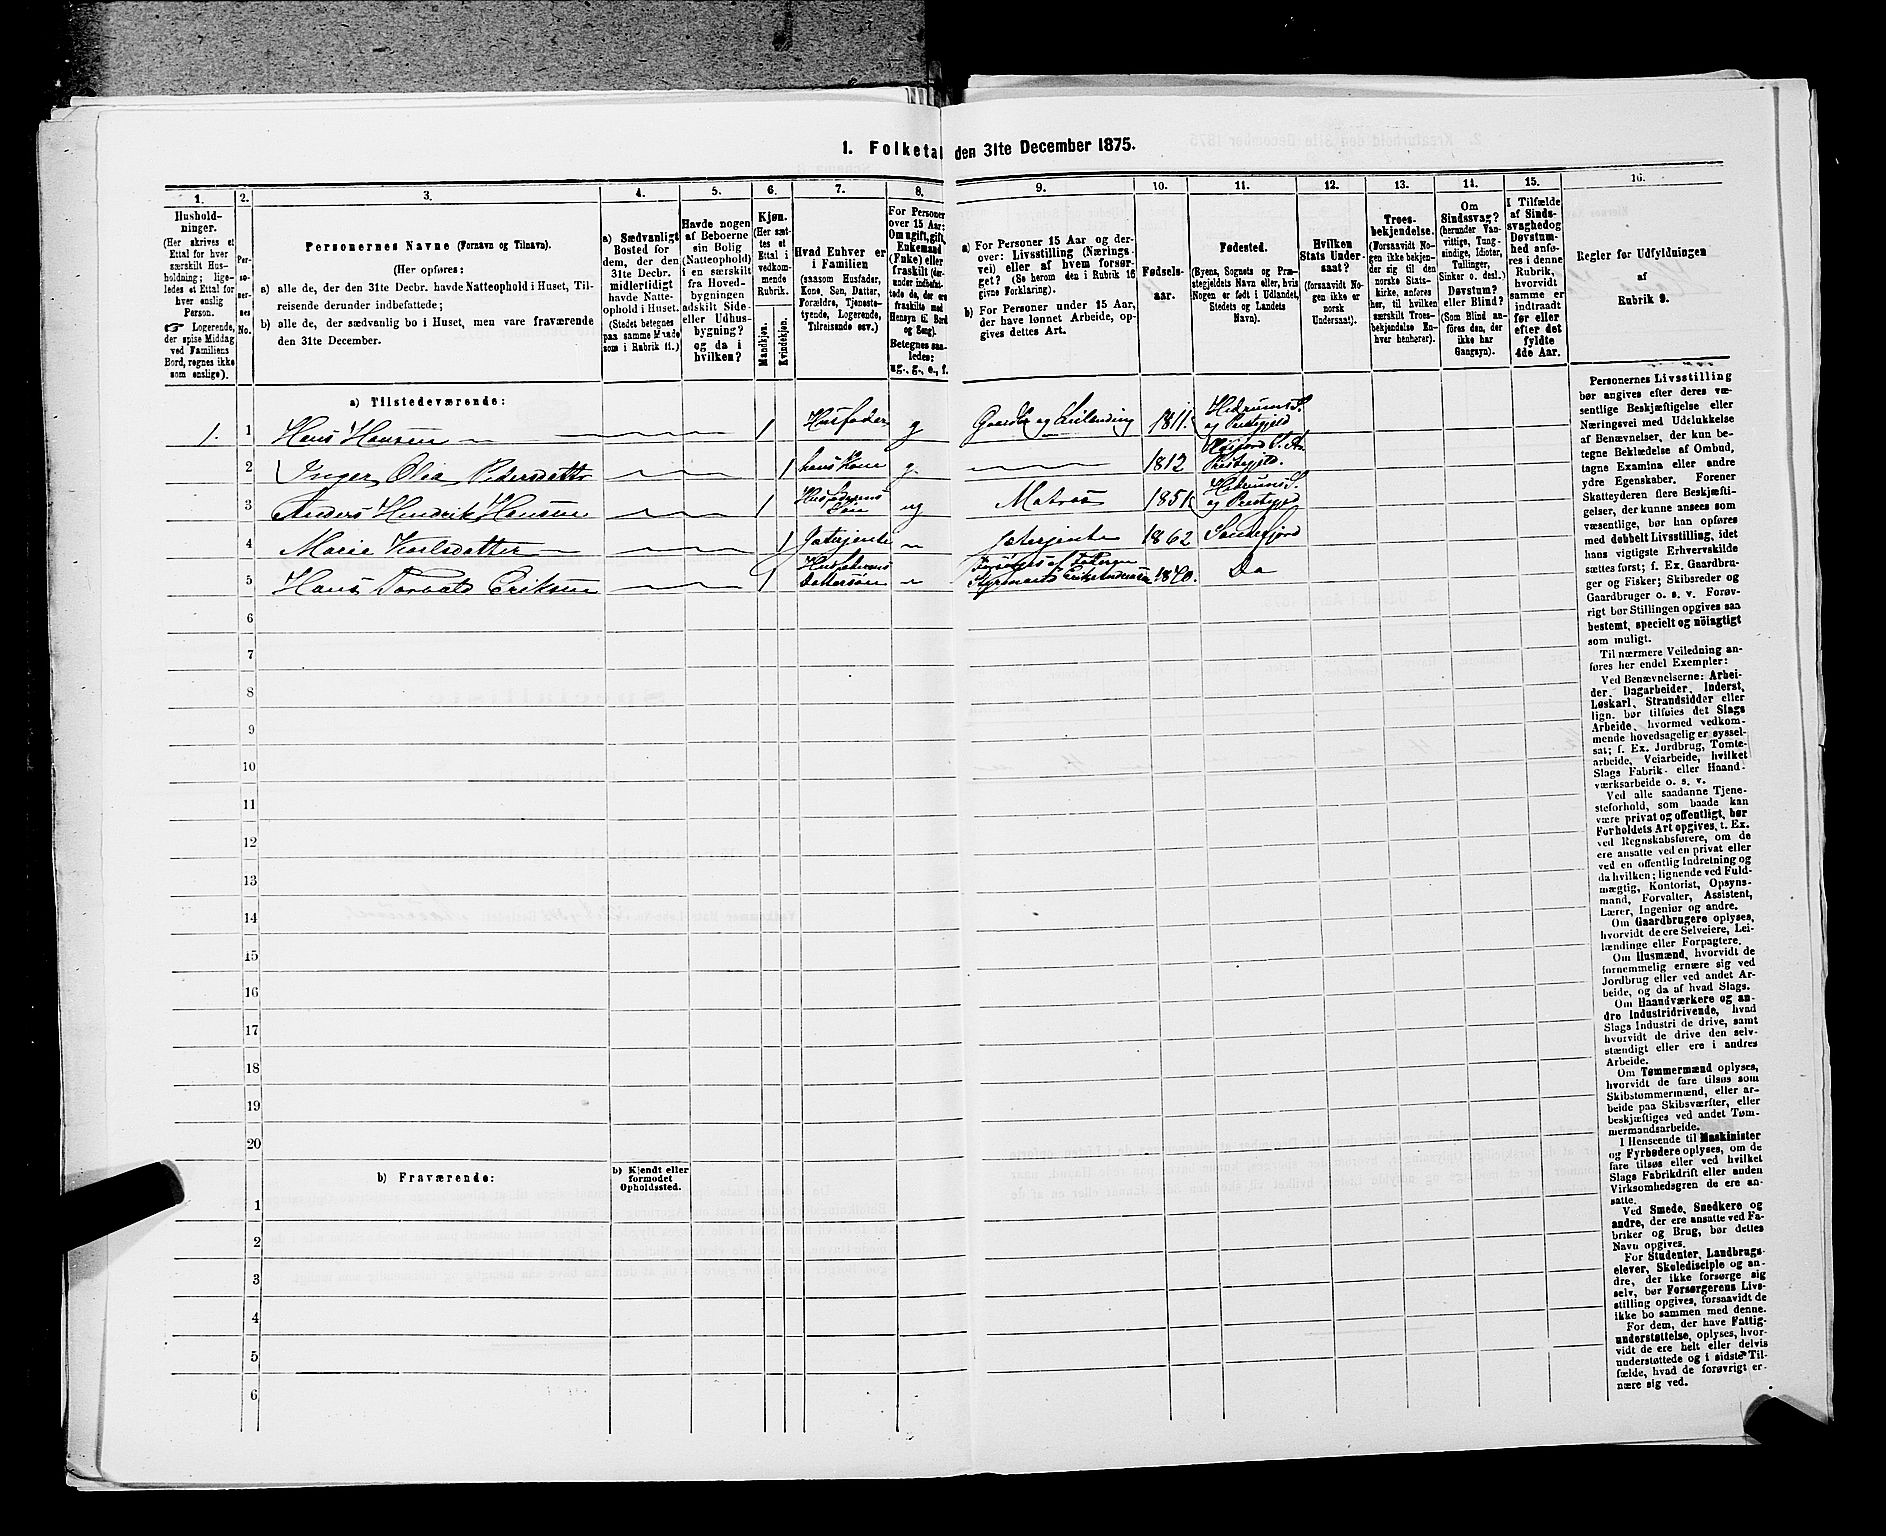 1. Folketal den 31te December 1875.
1. 2. 3. 4. 5. 6. 7. 8. 9. 10. 11. 12. 13. 14. 15. 16.
Hushold-
ninger.
(Her skrives et
Ettal for hver
særskilt Hus-
holdning; lige-
ledes et Ettal for
hver enslig
Person.
☞ Logerende,
der spise Middag
ved Familiens
Bord, regnes ikke
som enslige).
Per-
so-
ner-
nes
No.
Personernes Navne (Fornavn og Tilnavn).
(Her opføres:
a) alle de, der den 31te Decbr. havde Natteophold i Huset, Til-
reisende derunder indbefattede;
b) alle de, der sædvanlig bo i Huset, men vare fraværende
den 31te December.
a) Sædvanligt
Bosted for
dem, der den
31te Decbr.
midlertidigt
havde Natte-
ophold i Huset.
(Stedet betegnes
paa samme Maade
som i Rubrik 11.)
Havde nogen
af Beboerne
sin Bolig
(Natteophold)
i en særskilt
fra Hoved-
bygningen
adskilt Side-
eller Udhus-
bygning?
og da i
hvilken?
Kjøn.
(Her sæt-
tes et
Ettal i
vedkom-
mende
Rubrik.
Mandkjøn.
Kvindekjøn.
Hvad Enhver er
i Familien
(saasom Husfader,
Kone, Søn, Datter,
Forældre, Tjeneste-
tyende, Logerende,
Tilreisende osv.)
For Personer
over 15 Aar:
Om ugift, gift,
Enkemand
(Enke) eller
fraskilt (der-
under indbefat-
tede de, der ere
fraskilte med
Hensyn til Bord
og Seng).
Betegnes saa-
ledes:
ug., g., e., f.
a) For Personer 15 Aar og der-
over: Livsstilling (Nærings-
vei) eller af hvem forsør-
get? (Se herom den i Rubrik 16
givne Forklaring).
b) For Personer under 15 Aar,
der have lønnet Arbeide, op-
gives dettes Art.
Fødsels-
aar.
Fødested.
(Byens, Sognets og Præ-
stegjeldets Navn eller, hvis
Nogen er født i Udlandet,
Stedets og Landets
Navn).
Hvilken
Stats Under-
saat?
(forsaavidt No-
gen ikke er
norsk
Undersaat).
Troes-
bekjendelse.
(Forsaavidt No-
gen ikke bekjen-
der sig til den
norske Stats-
kirke, anføres
her, til hvilken
særskilt Troes-
bekjendelse En-
hver henhører).
Om
Sindssvag?
(herunder Van-
vittige, Tung-
sindige, Idioter,
Tullinger,
Sinker o. desl.)
Døvstum?
eller Blind?
(Som Blind an-
føres den, der
ikke har
Gangsyn).
I Tilfælde
af Sinds-
svaghed og
Døvstum-
hed anfø-
res i denne
Rubrik,
hvorvidt
samme er
indtraadt
før eller
efter det
fyldte
4de Aar.
Regler for Udfyldningen
af
Rubrik 9.
a) Tilstedeværende:
1. 1 Hans Hansen 1 Husfader g Gaardbr og Leilænding 1811. Hedrums S. og Prestegjeld
2 Inger Olia Pedersdatter 1 hans Kone g. 1812 Prestegjeld.
3 Anders Hendrik Hansen 1 Husfaderens Søn ug Matros 1851 Hedrums S. og Prestegjeld
4 Marie Karlsdatter 1 1862 Sandefjord
5 Hans Torvald Eriksen 1 Husfaderens Dattersøn Forsørges af Faderen Styrmand Erik Andersen 1870. Do
6
7
8
9
10
11
12
13
14
15
16
17
18
19
20
b) Fraværende:
b) Kjendt eller
formodet
Opholdssted.
1
2
3
4
5
6
Personernes Livsstilling
bør angives efter deres væ-
sentlige Beskjæftigelse eller
Næringsvei med Udelukkelse
af Benævnelser, der kun be-
tegne Beklædelse af Ombud,
tagne Examina eller andre
ydre Egenskaber. Forener
Skatteyderen flere Beskjæfti-
gelser, der kunne ansees som
væsentlige, bør han opføres
med dobbelt Livsstilling, idet
hans vigtigste Erhvervskilde
sættes først; f. Ex. Gaardbru-
ger og Fisker; Skibsreder og
Gaardbruger o. s. v. Forøv-
rigt bør Stillingen opgives saa
bestemt, specielt og nöiagtigt
som muligt.
Til nærmere Veiledning an-
føres her endel Exempler:
Ved Benævnelserne: Arbei-
der, Dagarbeider, Inderst,
Løskarl, Strandsidder eller
lign. bør tilføies det Slags
Arbeide, hvormed vedkom-
mende hovedsagelig er syssel-
sat; f. Ex. Jordbrug, Tomte-
arbeide, Veiarbeide, hvilket
Slags Fabrik- eller Haand-
værksarbeide o. s. v.
Ved alle saadanne Tjene-
steforhold, som baade kan
være privat og offentligt, bør
Forholdets Art opgives, t. Ex.
ved Regnskabsførere, om de
ere ansatte ved en privat eller
ved en offentlig Indretning og
da hvilken; lignende ved Fuld-
mægtig, Kontorist, Opsyns-
mand, Forvalter, Assistent,
Lærer, Ingeniør og andre.
Om Gaardbrugere oplyses,
hvorvidt de ere Selveiere, Lei-
lændinge eller Forpagtere.
Om Husmænd, hvorvidt de
fornemmelig ernære sig ved
Jordbrug eller ved andet Ar-
beide, og da af hvad Slags.
Om Haandværkere og an-
dre Industridrivende, hvad
Slags Industri de drive, samt
hvorvidt de drive den selv-
stændigt eller ere i andres
Arbeide.
Om Tømmermænd oplyses,
hvorvidt de fare tilsøs som
Skibstømmermænd, eller ar-
beide paa Skibsværfter, eller
beskjæftiges ved andet Tøm-
mermandsarbeide.
I Henseende til Maskinister
og Fyrbødere oplyses, om de
fare tilsøs eller ved hvilket
Slags Fabrikdrift eller anden
Virksomhedsgren de ere an-
satte.
Ved Smede, Snedkere og
andre, der ere ansatte ved Fa-
briker og Brug, bør dettes
Navn opgives.
For Studenter, Landbrugs-
elever, Skoledisciple og an-
dre, der ikke forsørge sig
selv, bør Forsørgerens Livs-
stilling opgives, forsaavidt de
ikke bo sammen med denne.
For dem, der have Fattig-
understøttelse, oplyses, hvor-
vidt de ere helt eller delvis
understøttede og i sidste Til-
fælde, hvad de forøvrigt er-
nære sig ved.